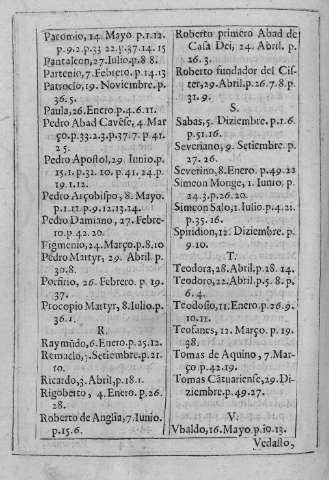 Pacomio, 14. Mayo. p.1.12.
p.9.2.p.33 22.p.37.14. 15
Pantaleon, 27. Iulio.p.8 8.
Partenio, 7. Febrero. p. 14.13
Patroclo, 19. Noviembre. p.
36.5.
Paula, 26. Enero.p.4.6.11.
Pedro Abad Cavẽse, 4. Mar
ço.p.33.2.3.p.37.7. p.41.
25.
Pedro Apostol, 29. Iunio.p.
15.1.p.31. 10. p.41. 24.p.
19.1.12.
Pedro Arçobispo, 8. Mayo.
p.1.11.p.9.12.13.14.
Pedro Damiano, 27. Febre-
ro.p.42.20.
Pigmenio, 24. Março.p.8.10
Pedro Martyr, 29. Abril. p.
30.8.
Porfirio, 26. Febrero. p. 19.
37.
Procopio Martyr, 8. Iulio.p.
36.1.
R.
Raymũdo, 6. Enero.p.25.12.
Remaclo, 3. Setiembre.p.21.
10.
Ricardo, 3. Abril, p.18.1.
Rigoberto, 4. Enero. p.26.
28.
Roberto de Anglia, 7. Iunio.
p.15.6.
Roberto primero Abad de
Casa Dei, 24. Abril. p.
26.3.
Roberto fundador del Cis-
ter, 29. Abril.p.26.7.8.p.
31.9.
S.
Sabas, 5. Diziembre. p.1.6.
p.51.16.
Severiano, 9. Setiembre. p.
27.26.
Severino, 8. Enero. p.49.22
Simeon Monge, 1. Iunio, p.
24.3.p.26.20.
Simeon Salo, 1. Iulio p.4.21.
p.35.16.
Spiridion, 12. Diziembre. p.
9.10.
T.
Teodora, 28. Abril.p.18. 14.
Teodoro, 22. Abril.p.5.8.p.
6.4.
Teodosio, 11. Enero.p.26.9.
10.11.
Teofanes, 12. Março. p.19.
38.
Tomas de Aquino, 7. Mar-
ço p.42.19.
Tomas Cãtuariense, 29. Di-
ziembre.p.49.27.
V.
Vbaldo, 16. Mayo.p.10.13.
Vedasto,